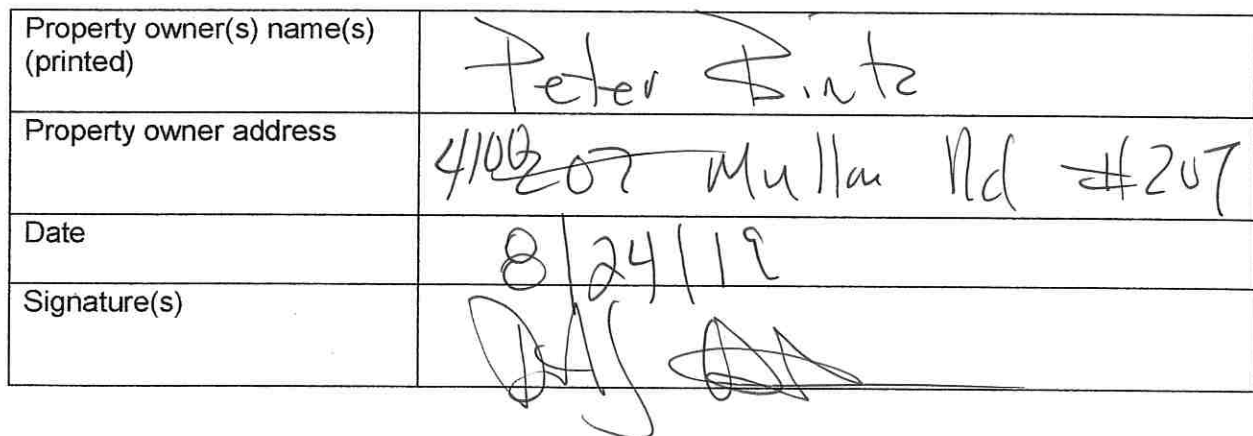 Property owner(s) name(s)
(printed)
Peter Bintz
Property owner address
4100 Mullan Rd #207
Date
8/24/19
Signature(s)